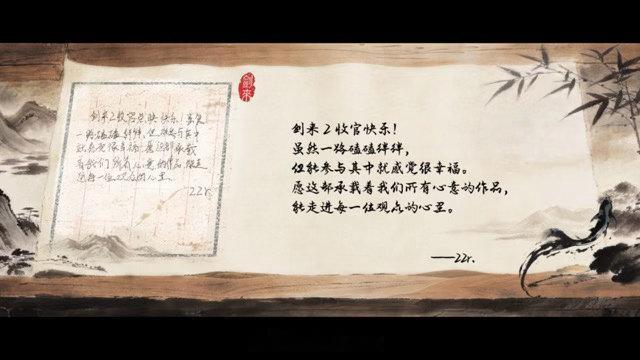 剑来2收官快乐!虽然
一路磕磕绊绊,但能参与其中
就感觉很幸福。愿这部承载
着我们所有心意的作品,能走
进每一位观众的心里。
22r.
剑来
剑来2收官快乐!
虽然一路磕磕绊绊,
但能参与其中就感觉很幸福。
愿这部承载着我们所有心意的作品,
能走进每一位观众的心里。
——22r.